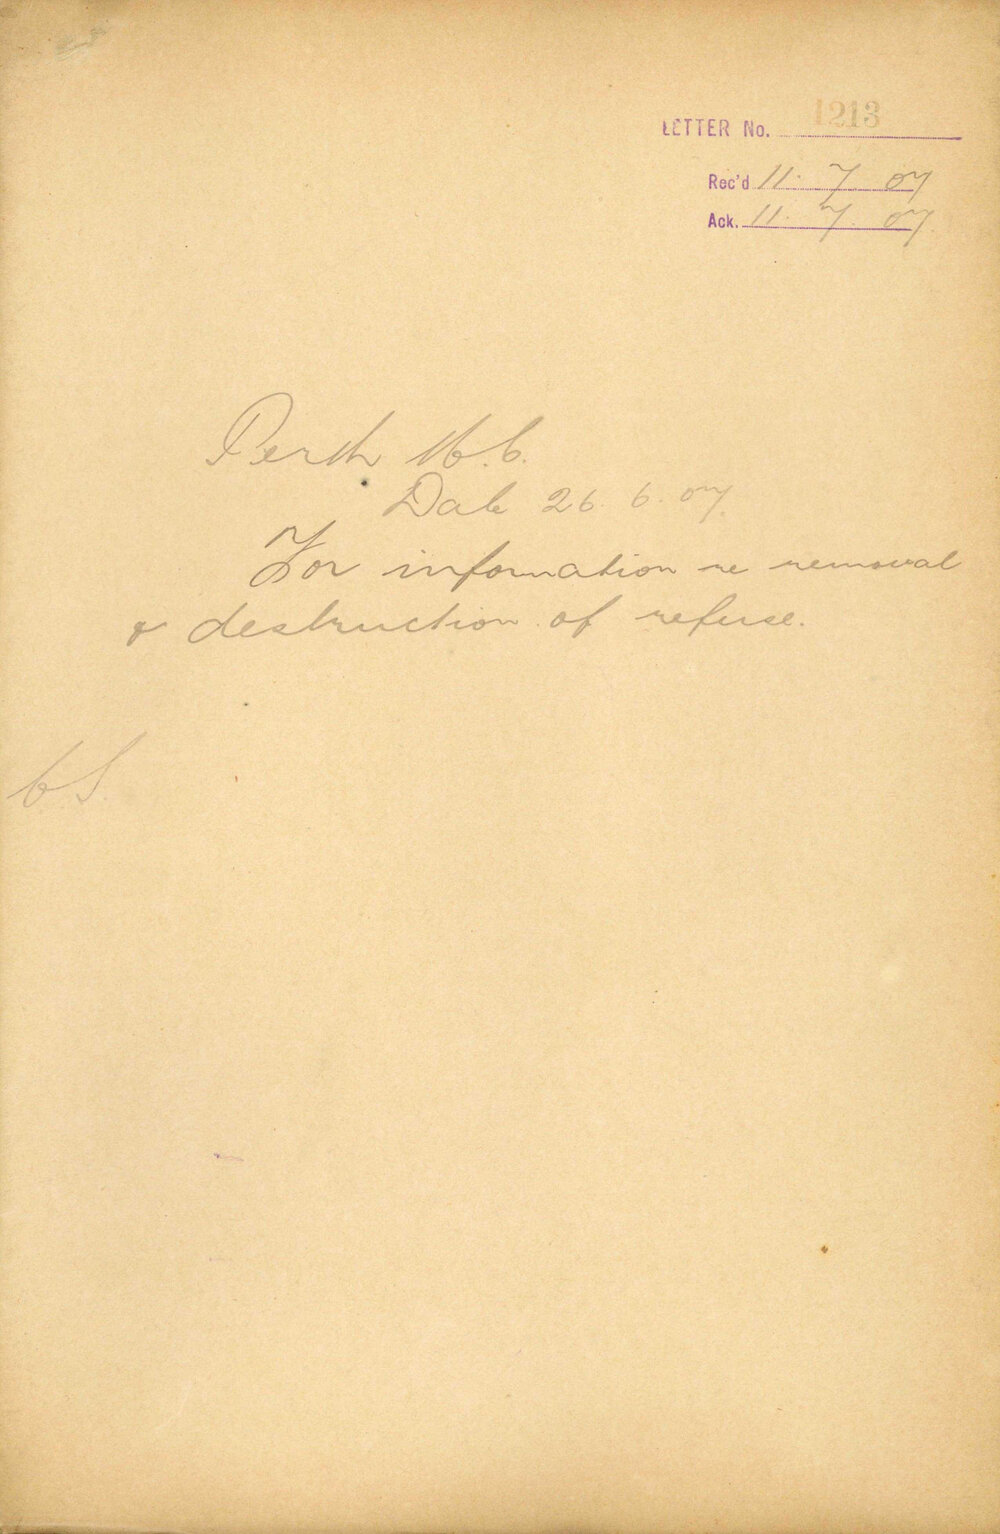 LETTER No. 1213
Rec'd 11. 7. 07
Ack. 11. 7. 07
Perth M.C.
Date 26. 6. 07.
For information re removal
& destruction of refuse.
CS